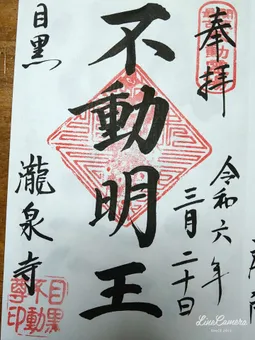 奉拝
令和六年
三月二十日
不動明王
目黒
瀧泉寺
目黒
不動
尊印
LineCamera